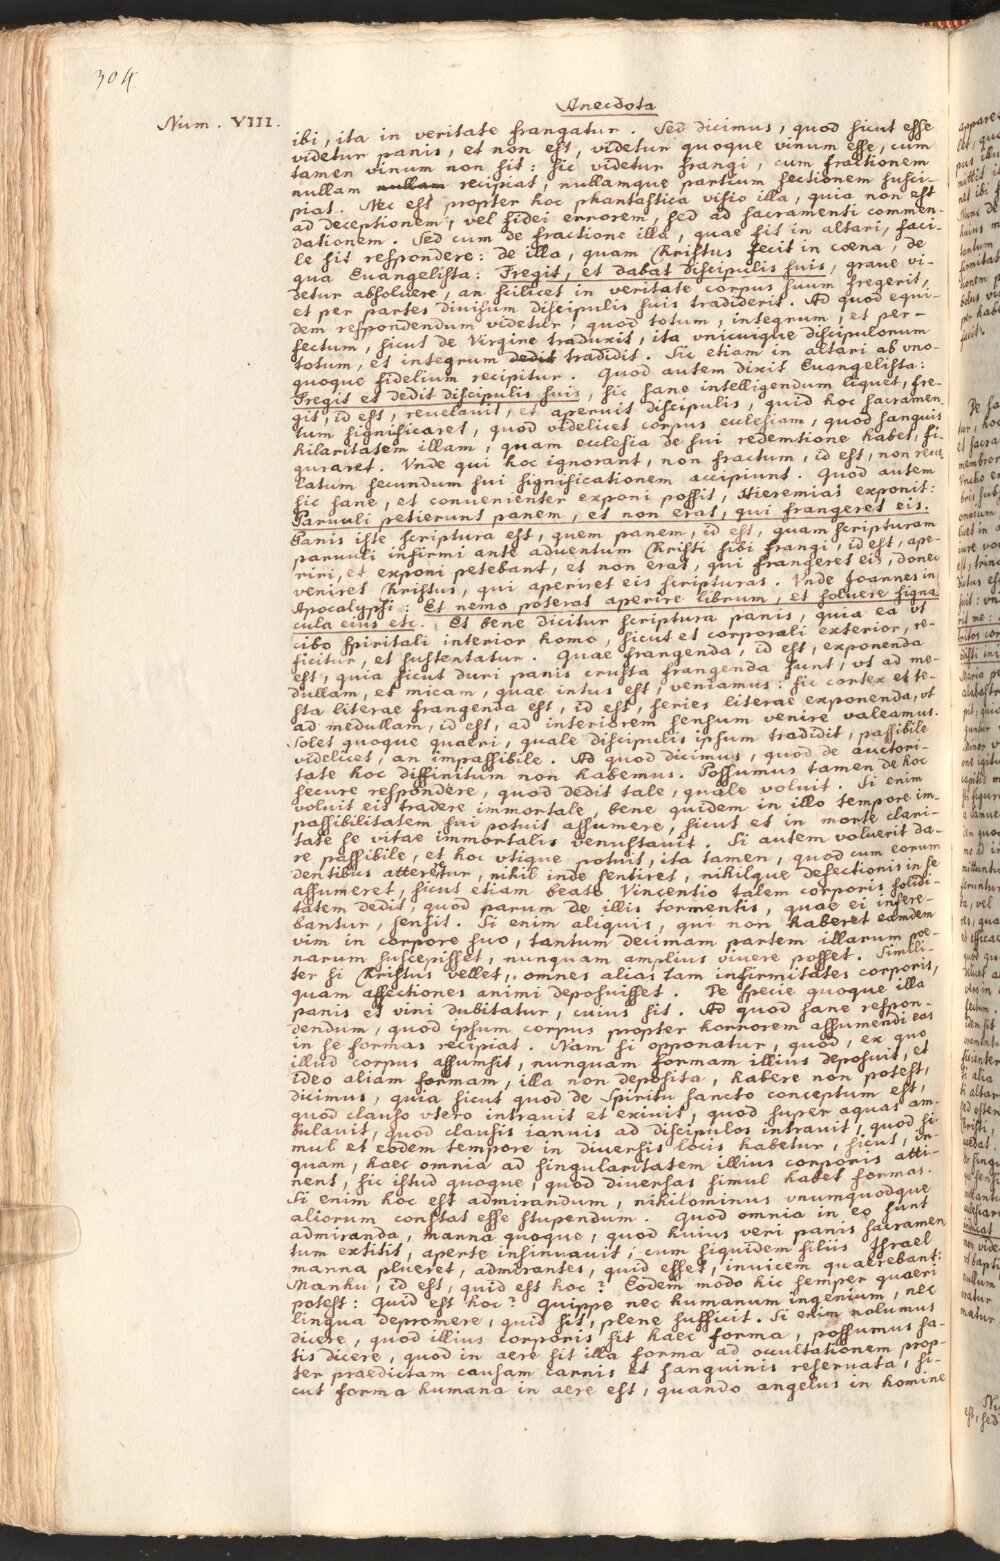 304
Anecdota
Num. VIII.
ibi, ita in veritate frangatur. Sed dicimus, quod sicut esse
videtur panis, et non est, videtur quoque vinum esse, cum
tamen vinum non sit: sic videtur frangi, cum fractionem
nullam nullam recipiat, nullamque partium sectionem susci-
piat. Nec est propter hoc phantastica visio illa, quia non est
ad deceptionem, vel fidei errorem, sed ad sacramenti commen-
dationem. Sed cum de fractione illa, quae fit in altari, faci-
le sit respondere: de illa, quam Christus fecit in coena, de
qua Euangelista: Fregit, et dabat discipulis suis, graue vi-
detur absoluere, an scilicet in veritate corpus suum fregerit,
et per partes diuisum discipulis suis tradiderit. Ad quod equi-
dem respondendum videtur, quod totum, integrum, et per-
fectum, sicut de Virgine traduxit, ita vnicuique discipulorum
totum, et integrum dedit tradidit. Sic etiam in altari ab vno-
quoque fidelium recipitur. Quod autem dixit Euangelista:
Fregit et dedit discipulis suis, sic sane intelligendum liquet, fre-
git, id est, reuelauit, et aperuit discipulis, quid hoc sacramen
tum significaret, quod videlicet corpus ecclesiam, quod sanguis
hilaritatem illam, quam ecclesia de sui redemtione habet, fi-
guraret. Vnde qui hoc ignorant, non fractum, id est, non reue
latum secundum sui significationem accipiunt. Quod autem
sic sane, et conuenienter exponi possit, Hieremias exponit:
Paruuli petierunt panem, et non erat, qui frangeret eis.
Panis iste scriptura est, quem panem, id est, quam scripturam
paruuli infirmi ante aduentum Christi sibi frangi, id est, ape-
riri, et exponi petebant, et non erat, qui frangeret eis, donec
veniret Christus, qui aperiret eis scripturas. Vnde Joannes in
Apocalypsi: Et nemo poterat aperire librum, et soluere signa
cula eius etc. Et bene dicitur scriptura panis, quia ea vt
cibo spiritali interior homo, sicut et corporali exterior, re-
ficitur, et sustentatur. Quae frangenda, id est, exponenda
est, quia sicut duri panis crusta frangenda sunt, vt ad me-
dullam, et micam, quae intus est, veniamus: sic cortex et te-
sta literae frangenda est, id est, series literae exponenda, vt
ad medullam, id est, ad interiorem sensum venire valeamus.
Solet quoque quaeri, quale discipulis ipsum tradidit, passibile
videlicet, an impassibile. Ad quod dicimus, quod de auctori-
tate hoc diffinitum non habemus. Possumus tamen de hoc
secure respondere, quod dedit tale, quale voluit. Si enim
voluit eis tradere immortale, bene quidem in illo tempore im-
passibilitatem sui potuit assumere, sicut et in morte clari-
tate se vitae immortalis venustauit. Si autem voluerit da-
re passibile, et hoc vtique potuit, ita tamen, quod cum eorum
dentibus attereretur, nihil inde sentiret, nihilque defectionis in se
assumeret, sicut etiam beato Vincentio talem corporis solidi-
tatem dedit, quod parum de illis tormentis, quae ei infere-
bantur, sensit. Si enim aliquis, qui non haberet eamdem
vim in corpore suo, tantum decimam partem illarum poe-
narum suscepisset, nunquam amplius viuere posset. Simili-
ter si Christus vellet, omnes alias tam infirmitates corporis,
quam affectiones animi deposuisset. De specie quoque illa
panis et vini dubitatur, cuius sit. Ad quod sane respon-
dendum, quod ipsum corpus propter horrorem assumendi eas
in se formas recipiat. Nam si opponatur, quod, ex quo
illud corpus assumsit, nunquam formam illius deposuit, et
ideo aliam formam, illa non deposita, habere non potest,
dicimus, quia sicut quod de Spiritu sancto conceptum est,
quod clauso vtero intrauit et exiuit, quod super aquas am-
bulauit, quod clausis ianuis ad discipulos intrauit, quod si-
mul et eodem tempore in diuersis locis habetur, sicut, in-
quam, haec omnia ad singularitatem illius corporis atti-
nent, sic istud quoque, quod diuersas simul habet formas.
Si enim hoc est admirandum, nihilominus vnumquodque
aliorum constat esse stupendum. Quod omnia in eo sunt
admiranda, manna quoque, quod huius veri panis sacramen
tum extitit, aperte insinuauit, cum siquidem filiis Israel
manna plueret, admirantes, quid esset, inuicem quaerebant:
Manhu, id est, quid est hoc? Eodem modo hic semper quaeri
potest: Quid est hoc? Quippe nec humanum ingenium, nec
lingua depromere, quid sit, plene sufficit. Si enim nolumus
dicere, quod illius corporis sit haec forma, possumus sa-
tis dicere, quod in aere sit illa forma ad occultationem prop-
ter praedictam causam carnis et sanguinis reseruata, si-
cut forma humana in aere est, quando angelus in homine